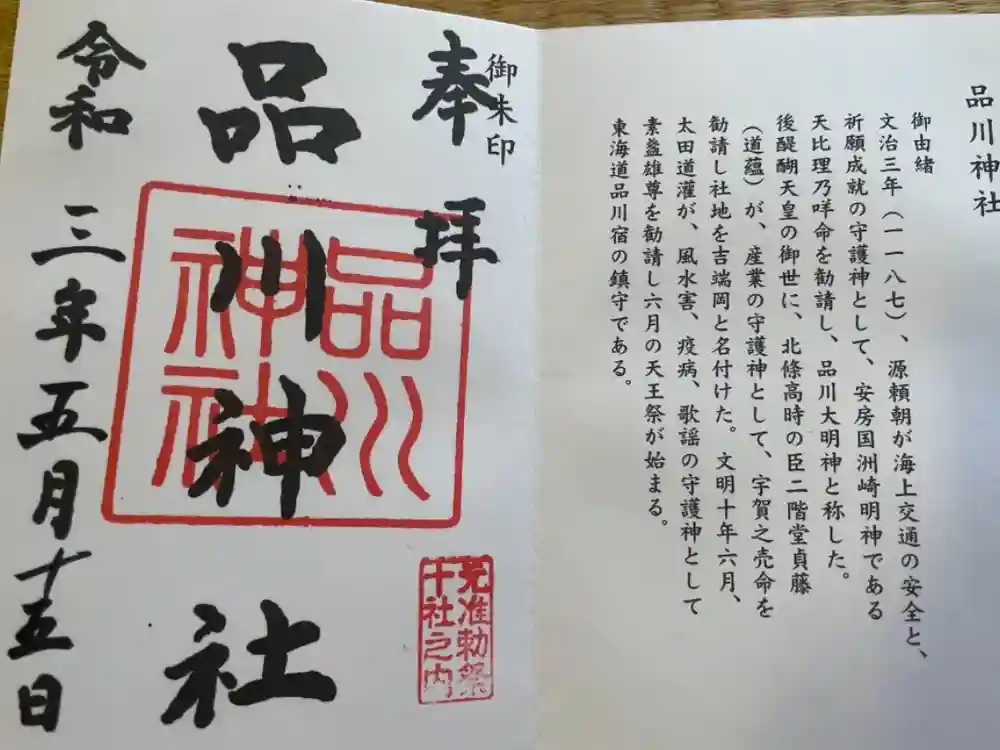 品川神社
御由緒
文治三年（一一八七）、源頼朝が海上交通の安全と、
祈願成就の守護神として、安房国洲崎明神である
天比理乃咩命を勧請し、品川大明神と称した。
後醍醐天皇の御世に、北條高時の臣二階堂貞藤
（道蘊）が、産業の守護神として、宇賀之売命を
勧請し社地を吉端岡と名付けた。文明十年六月、
太田道灌が、風水害、疫病、歌謡の守護神として
素盞雄尊を勧請し六月の天王祭が始まる。
東海道品川宿の鎮守である。
御朱印
奉拝
品川神社
令和三年五月十五日
品川
神社
元准勅祭
十社之内